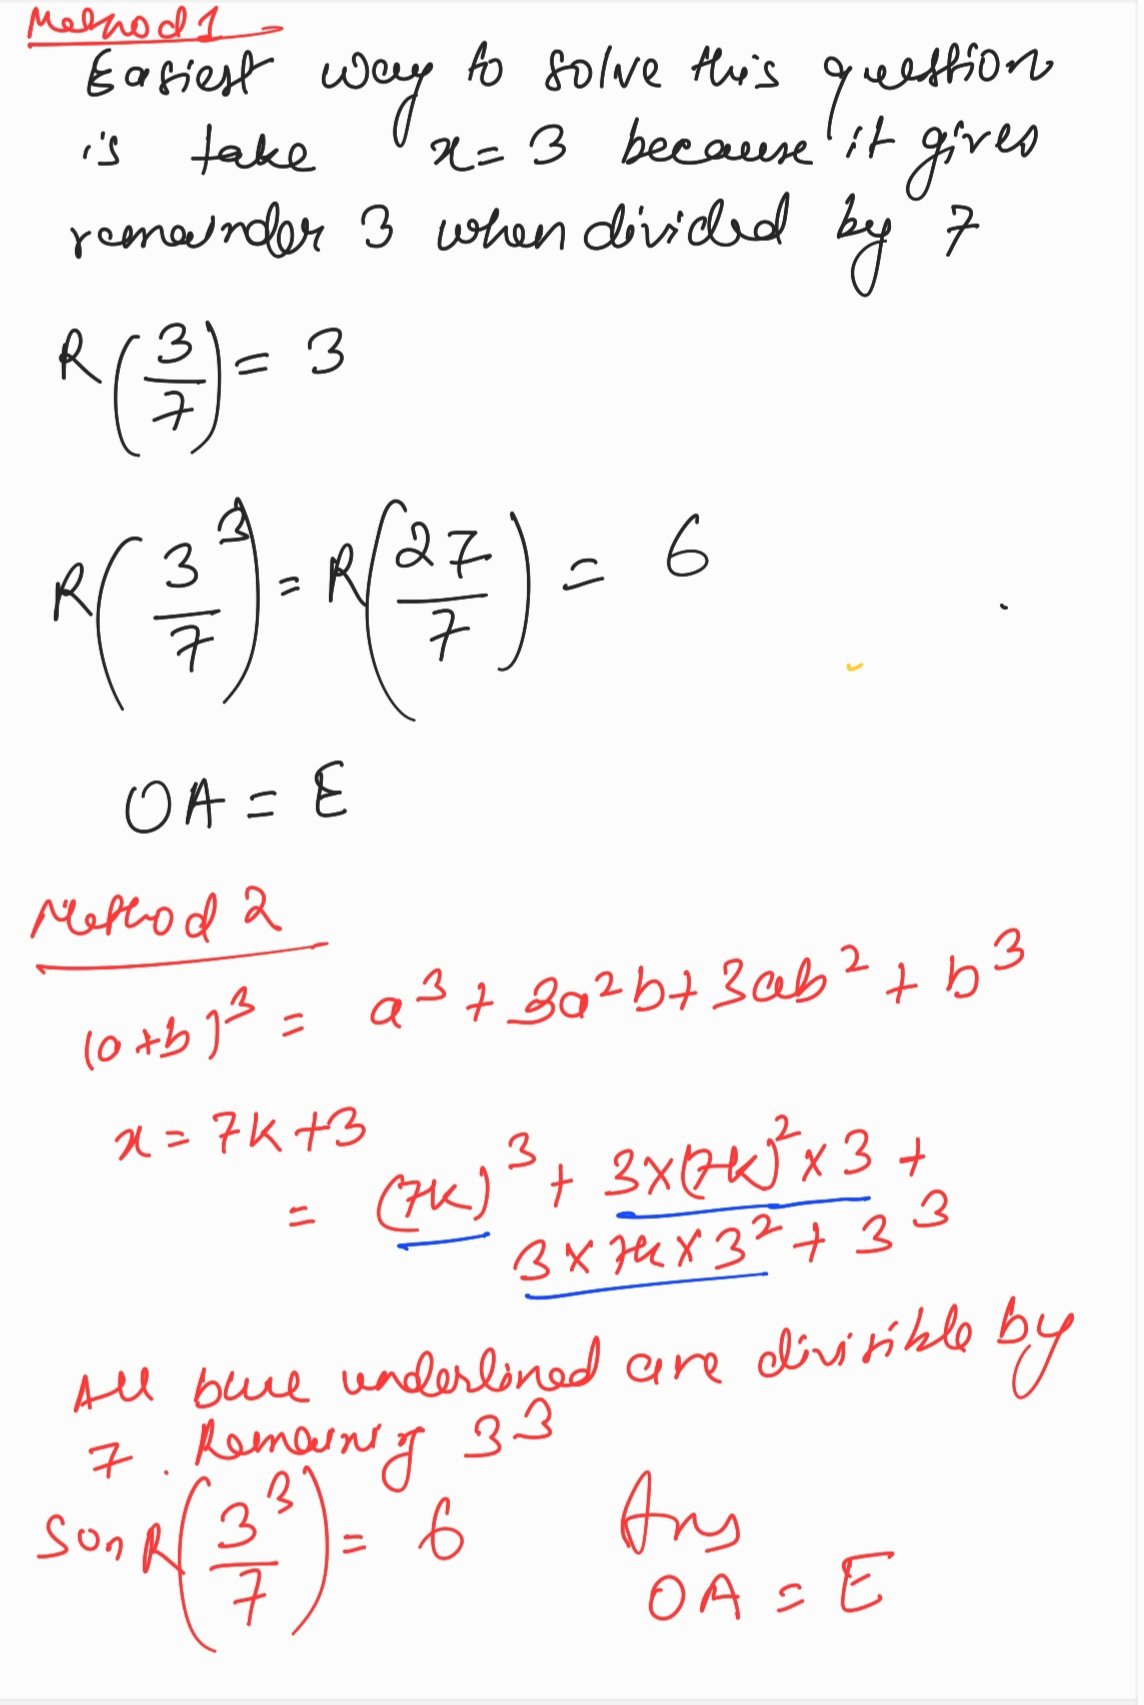 Method 1
Easiest way to solve this question
is take x = 3 because it gives
remainder 3 when divided by 7
R(3/7) = 3
R(3³/7) = R(27/7) = 6
OA = E
Method 2
(a+b)³ = a³ + 3a²b + 3ab² + b³
x = 7k + 3
= (7k)³ + 3×(7k)²×3 +
3×7k×3² + 3³
All blue underlined are divisible by
7. Remaining 3³
So, R(3³/7) = 6 Ans
OA = E